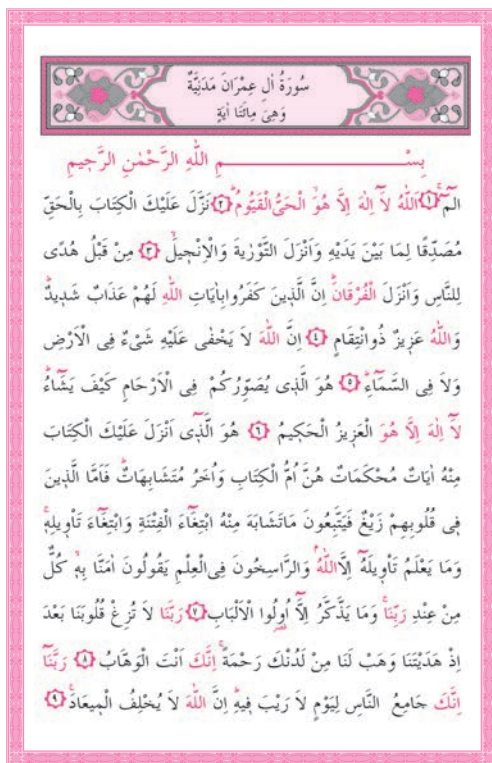 سُورَةُ اٰلِ عِمْرَانَ مَدَنِيَّةٌ
وَهِيَ مِائَتَا اٰيَةٍ
بِسْمِ اللّٰهِ الرَّحْمٰنِ الرَّحِيمِ
الٓمٓ ﴿١﴾ اَللّٰهُ لَٓا اِلٰهَ اِلَّا هُوَۙ الْحَيُّ الْقَيُّومُۜ ﴿٢﴾ نَزَّلَ عَلَيْكَ الْكِتَابَ بِالْحَقِّ
مُصَدِّقًا لِمَا بَيْنَ يَدَيْهِ وَاَنْزَلَ التَّوْرٰيةَ وَالْاِنْجٖيلَۙ ﴿٣﴾ مِنْ قَبْلُ هُدًى
لِلنَّاسِ وَاَنْزَلَ الْفُرْقَانَۜ اِنَّ الَّذٖينَ كَفَرُوا بِاٰيَاتِ اللّٰهِ لَهُمْ عَذَابٌ شَدٖيدٌۜ
وَاللّٰهُ عَزٖيزٌ ذُوانْتِقَامٍ ﴿٤﴾ اِنَّ اللّٰهَ لَا يَخْفٰى عَلَيْهِ شَيْءٌ فِي الْاَرْضِ
وَلَا فِي السَّمَٓاءِۜ ﴿٥﴾ هُوَ الَّذٖي يُصَوِّرُكُمْ فِي الْاَرْحَامِ كَيْفَ يَشَٓاءُۜ
لَٓا اِلٰهَ اِلَّا هُوَ الْعَزٖيزُ الْحَكٖيمُ ﴿٦﴾ هُوَ الَّذٖٓي اَنْزَلَ عَلَيْكَ الْكِتَابَ
مِنْهُ اٰيَاتٌ مُحْكَمَاتٌ هُنَّ اُمُّ الْكِتَابِ وَاُخَرُ مُتَشَابِهَاتٌۜ فَاَمَّا الَّذٖينَ
فٖي قُلُوبِهِمْ زَيْغٌ فَيَتَّبِعُونَ مَاتَشَابَهَ مِنْهُ ابْتِغَٓاءَ الْفِتْنَةِ وَابْتِغَٓاءَ تَاْوٖيلِهٖۚ
وَمَا يَعْلَمُ تَاْوٖيلَهُٓ اِلَّا اللّٰهُۢ وَالرَّاسِخُونَ فِي الْعِلْمِ يَقُولُونَ اٰمَنَّا بِهٖۙ كُلٌّ
مِنْ عِنْدِ رَبِّنَاۚ وَمَا يَذَّكَّرُ اِلَّٓا اُولُوا الْاَلْبَابِ ﴿٧﴾ رَبَّنَا لَا تُزِغْ قُلُوبَنَا بَعْدَ
اِذْ هَدَيْتَنَا وَهَبْ لَنَا مِنْ لَدُنْكَ رَحْمَةًۚ اِنَّكَ اَنْتَ الْوَهَّابُ ﴿٨﴾ رَبَّنَٓا
اِنَّكَ جَامِعُ النَّاسِ لِيَوْمٍ لَا رَيْبَ فٖيهِۜ اِنَّ اللّٰهَ لَا يُخْلِفُ الْمٖيعَادَۚ ﴿٩﴾